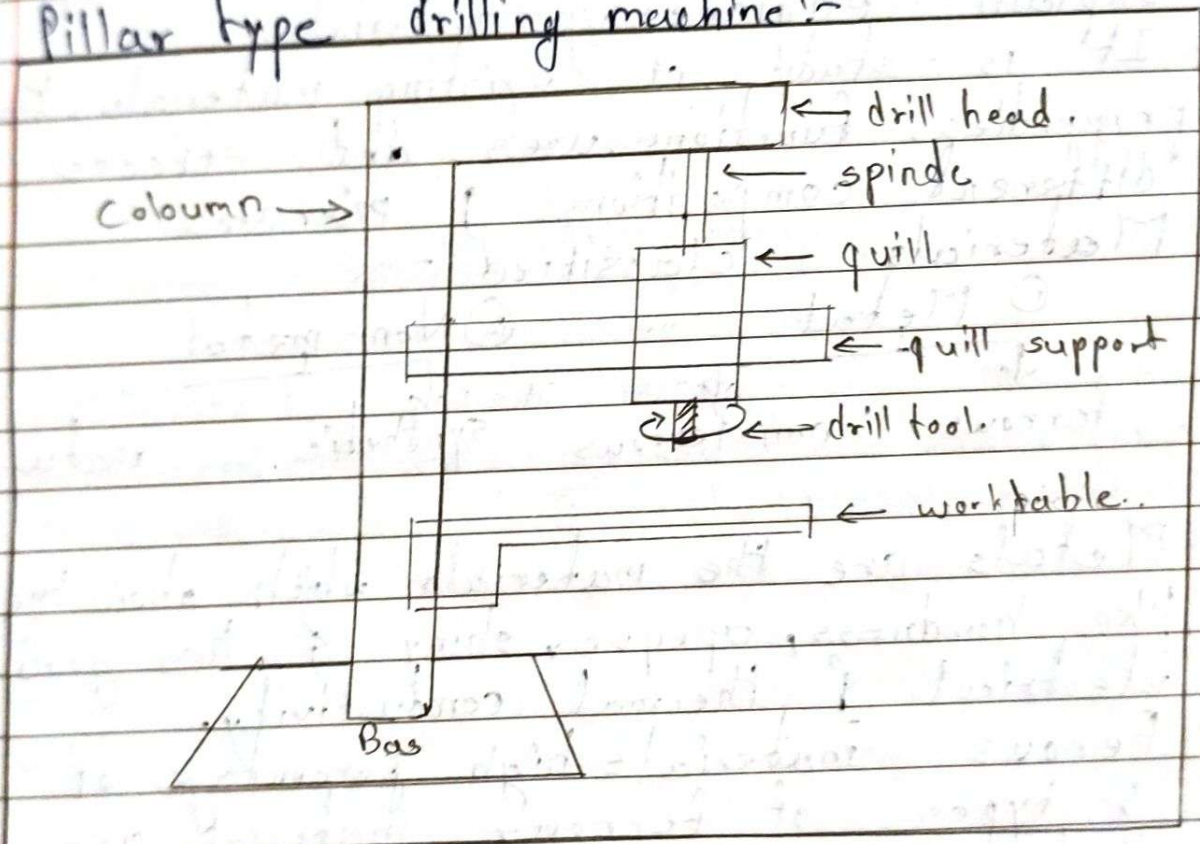 Pillar type drilling machine :-
drill head.
spindc
Coloumn
quill
quill support
drill tool.
worktable..
Bas